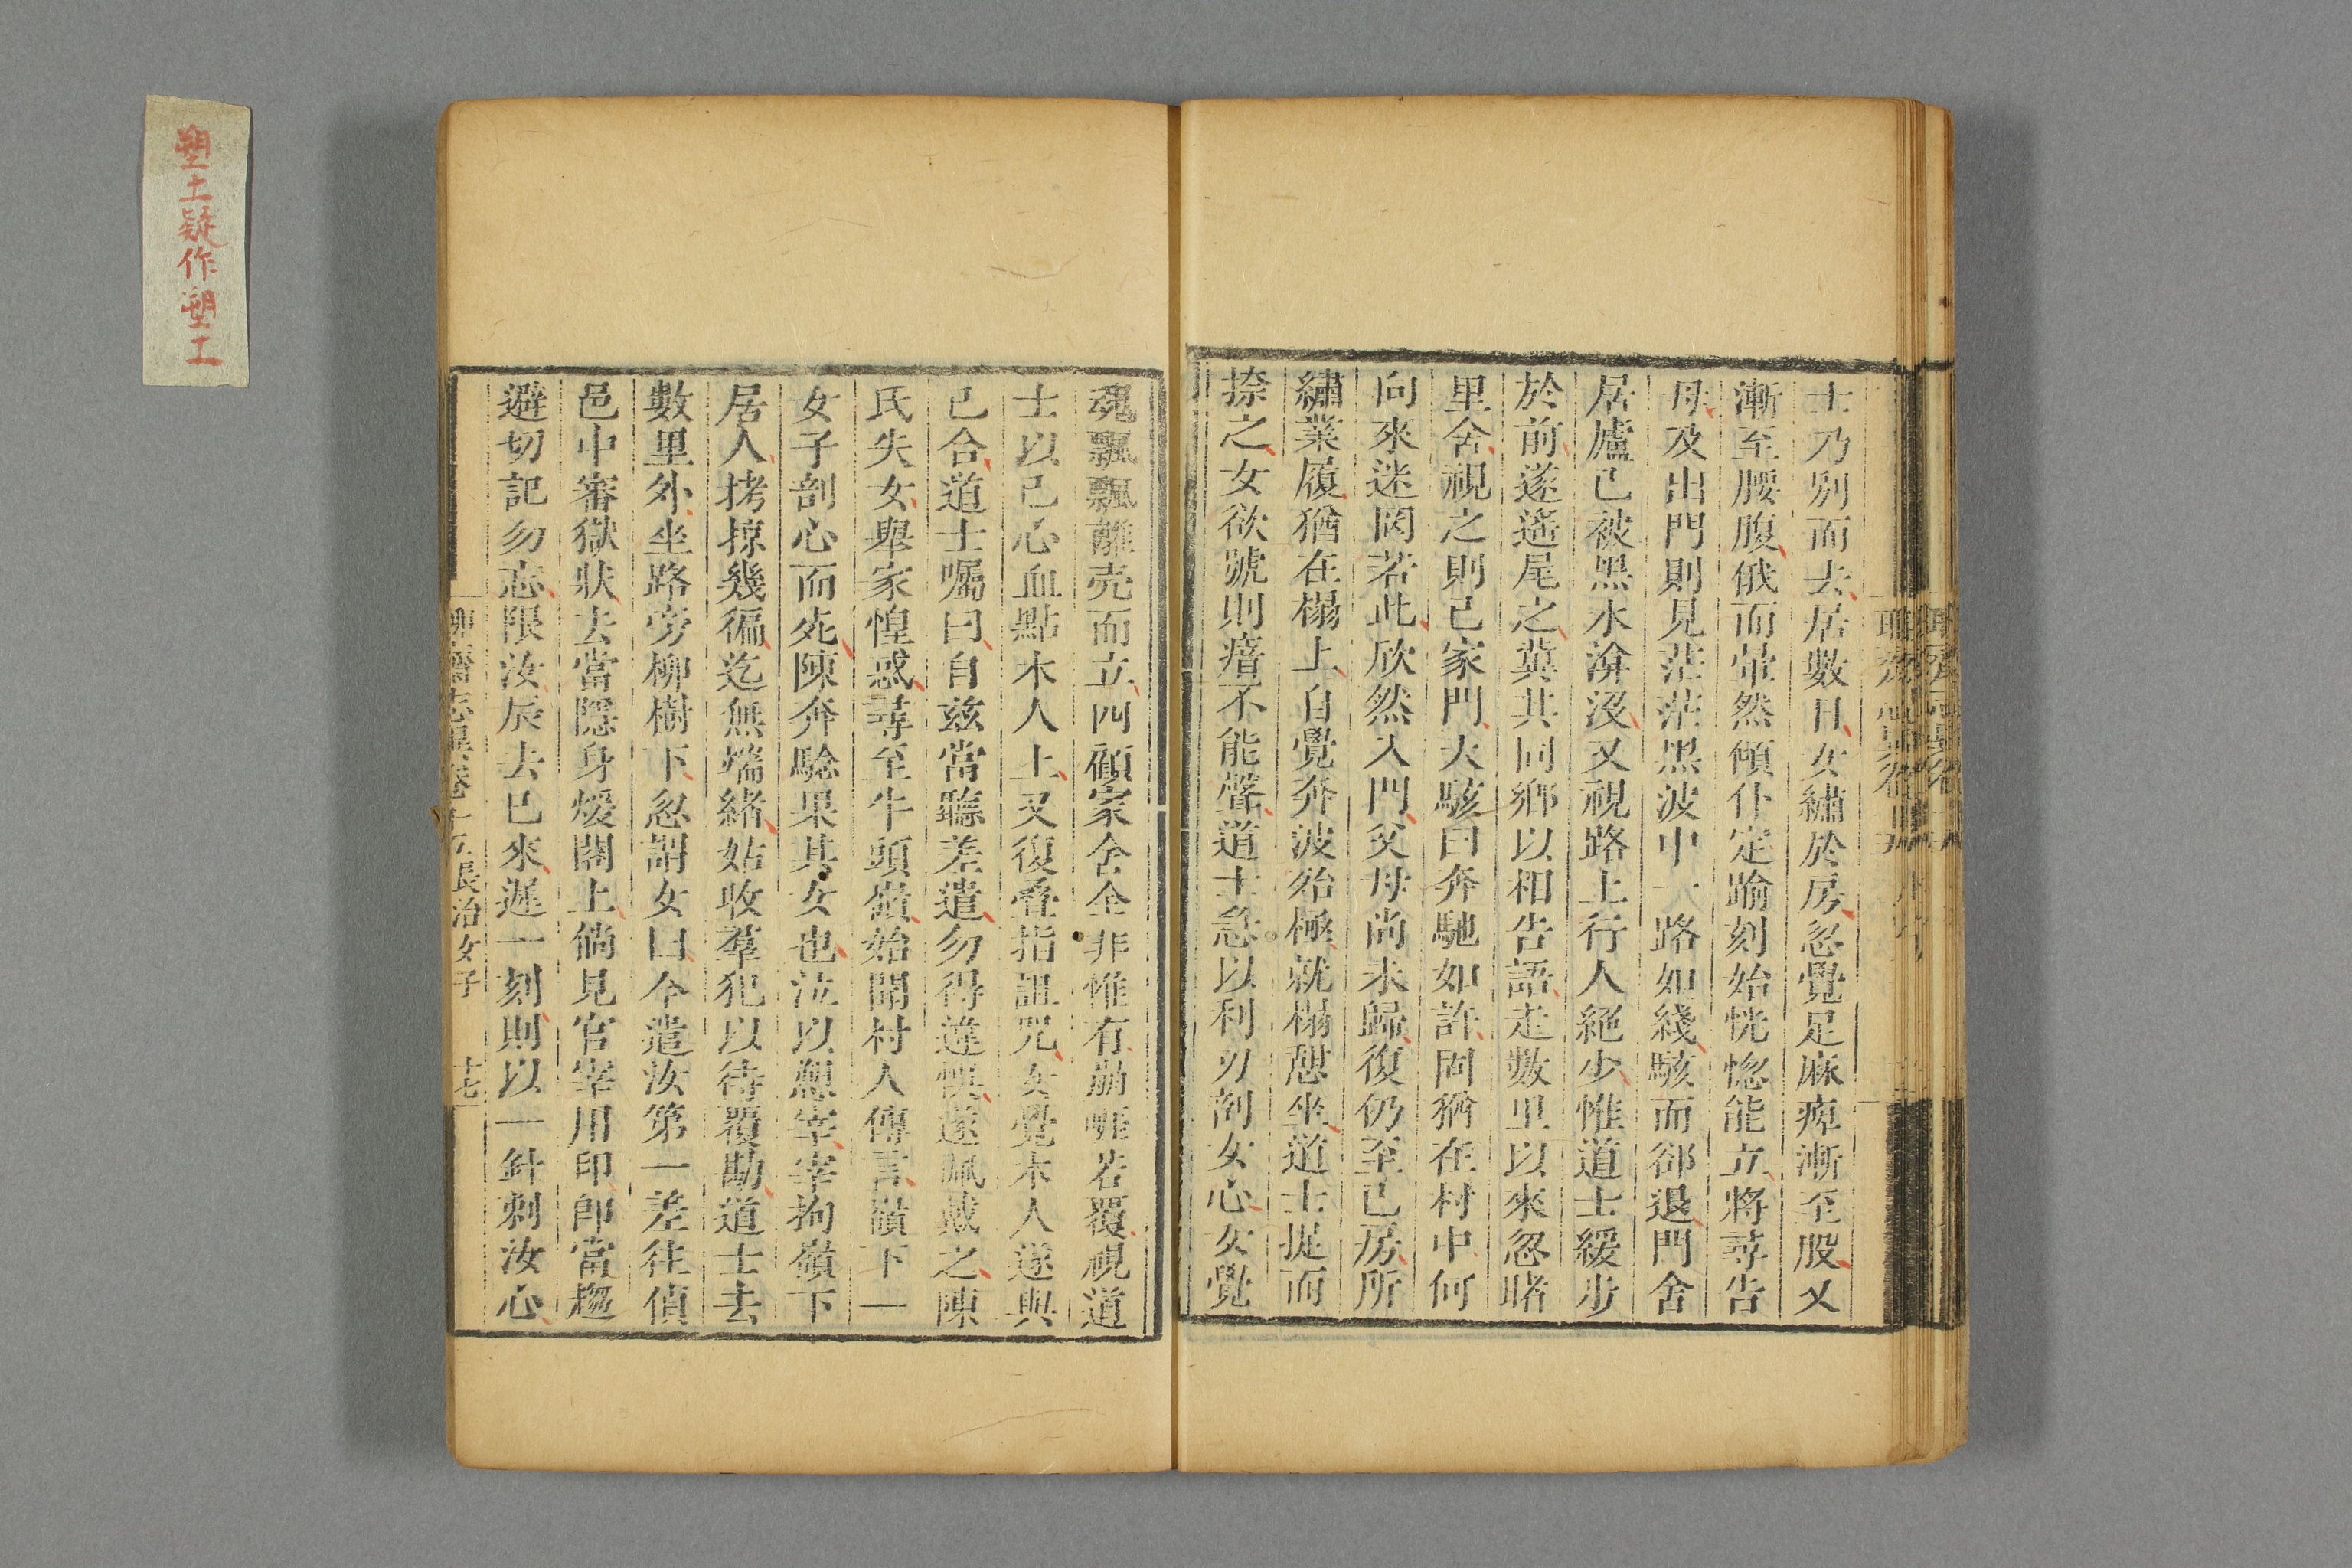 士乃別而去居數日女繡於房忽覺足麻痺漸至股又
漸至腰腹俄而暈然傾仆定踰刻始恍惚能立將尋告
母及出門則見茫茫黑波中一路如綫駭而郤退門舍
居廬已被黑水渰沒又視路上行人絕少惟道士緩步
於前遂遙尾之冀其同鄉以相告語走數里以來忽睹
里舍視之則已家門大駭曰奔馳如許固猶在村中何
向來迷罔若此欣然入門父母尚未歸復仍至已房所
繡業履猶在榻上自覺奔波殆極就榻憩坐道士提而
捺之女欲號則瘖不能聲道士急以利刃剖女心女覺
魂飄飄離壳而立四顧家舍全非惟有崩崖若覆視道
士以己心血點木人上又復疊指詛咒女覺木人遂與
己合道士囑曰自兹當聽差遣勿得違悞遂佩戴之陳
氏失女舉家惶惑尋至牛頭嶺始聞村人傳言嶺下一
女子剖心而死陳奔騐果其女也泣以愬宰宰拘嶺下
居人拷掠幾徧迄無端緒姑收羣犯以待覆勘道士去
數里外坐路旁柳樹下忽謂女曰今遣汝第一差往偵
邑中審獄狀去當隱身煖閣上倘見官宰用印卽當趨
避切記勿忘限汝辰去巳來遲一刻則以一針刺汝心
聊齋志異卷十五 長治女子 十七
塑土疑作塑工